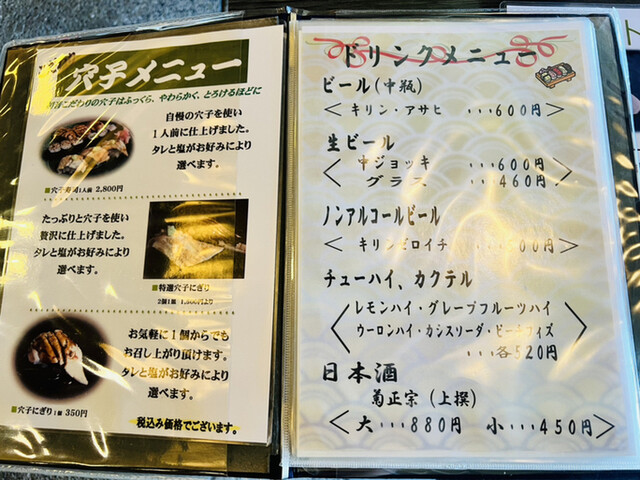 穴子メニュー
こだわりの穴子はふっくら、やわらかく、とろけるほどに
自慢の穴子を使い
1人前に仕上げました。
タレと塩がお好みにより
選べます。
■穴子寿司1人前 2,800円
たっぷりと穴子を使い
贅沢に仕上げました。
タレと塩がお好みにより
選べます。
■特選穴子にぎり
2個1皿 1,500円より
お気軽に1個からでも
お召し上がり頂けます。
タレと塩がお好みにより
選べます。
■穴子にぎり1個 350円
税込み価格でございます。
ドリンクメニュー
ビール(中瓶)
<キリン・アサヒ ・・・600円>
生ビール
<中ジョッキ ・・・600円>
グラス ・・・460円
ノンアルコールビール
<キリンゼロイチ 00円>
チューハイ、カクテル
レモンハイ・グレープフルーツハイ
ウーロンハイ・カシスソーダ・ピーチフィズ
・・・各520円
日本酒
菊正宗(上撰)
<大・・・880円 小・・・450円>